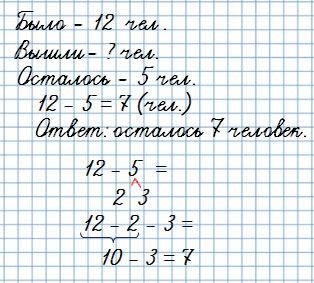 Было - 12 чел.
Вышли - ? чел.
Осталось - 5 чел.
12 - 5 = 7 (чел.)
Ответ: осталось 7 человек.
12 - 5 =
2 3
12 - 2 - 3 =
10 - 3 = 7